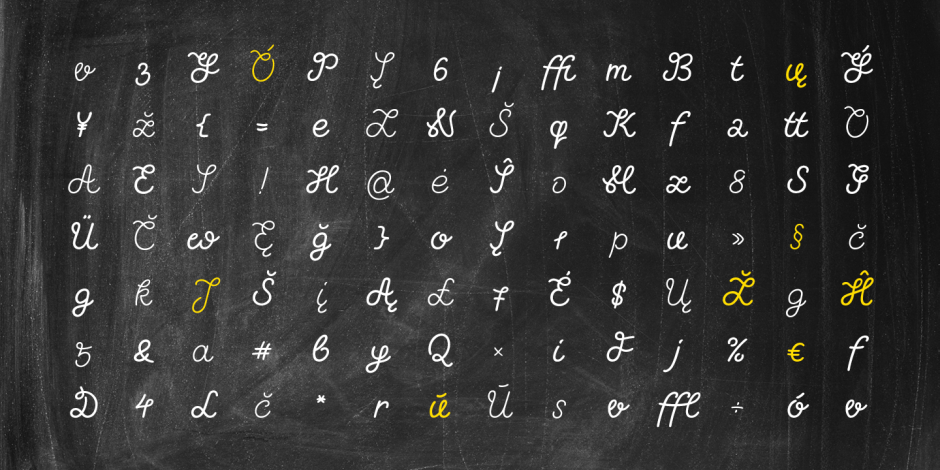 3 Ó P 6 j ffi m B t ų
¥ ž { = e Z N Š φ K f a tt O
A E ! H @ ė o M æ 8 S
Ü Č w Ę ğ } o p » § č
g k J Š į Ą £ 7 É $ Ų Ž g Ĥ
5 & a # 6 y Q × i F j % € f
4 L č * r Ū s ffl ÷ ó